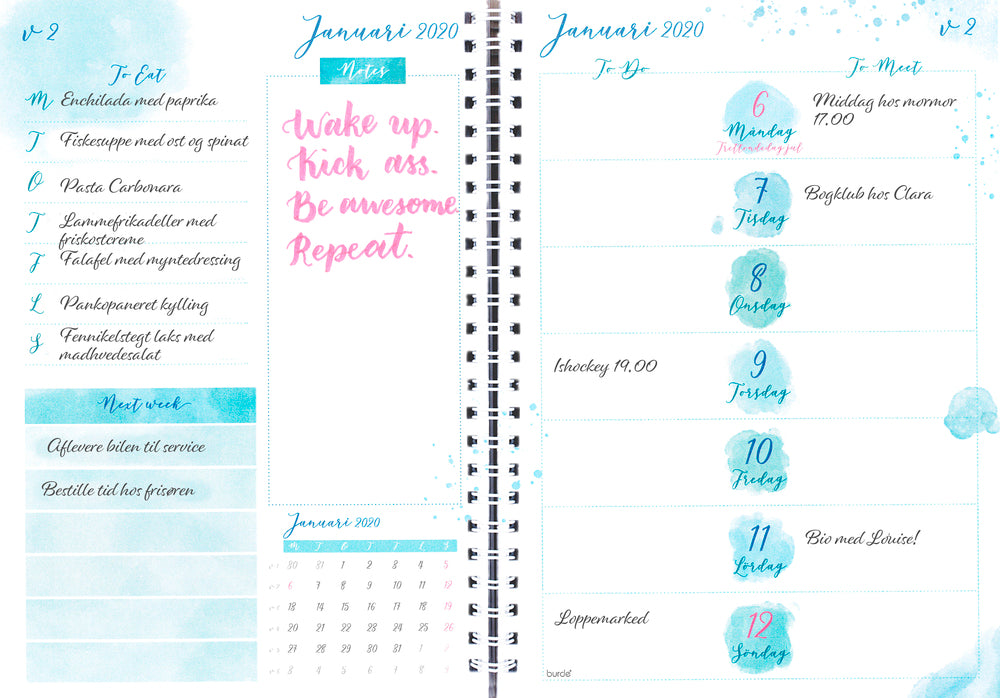 v 2
Januari 2020
To Eat
M Enchilada med paprika
T Fiskesuppe med ost og spinat
O Pasta Carbonara
T Lammefrikadeller med
friskostcreme
F Falafel med myntedressing
L Pankopaneret kylling
S Fennikelstegt laks med
madhvedesalat
Next week
Aflevere bilen til service
Bestille tid hos frisøren
Notes
Wake up.
Kick ass.
Be awesome
Repeat.
Januari 2020
M T O T T L S
30 31 1 2 3 4 5
6 7 8 9 10 11 12
13 14 15 16 17 18 19
20 21 22 23 24 25 26
27 28 29 30 31 1 2
3 4 5 6 7 8 9
Januari 2020
v 2
To Do
To Meet
6
Måndag
Trettondedag jul
Middag hos mormor
17.00
7
Tisdag
Bogklub hos Clara
8
Onsdag
Ishockey 19.00
9
Torsdag
10
Fredag
11
Lördag
Bio med Louise!
Loppemarked
12
Söndag
burde